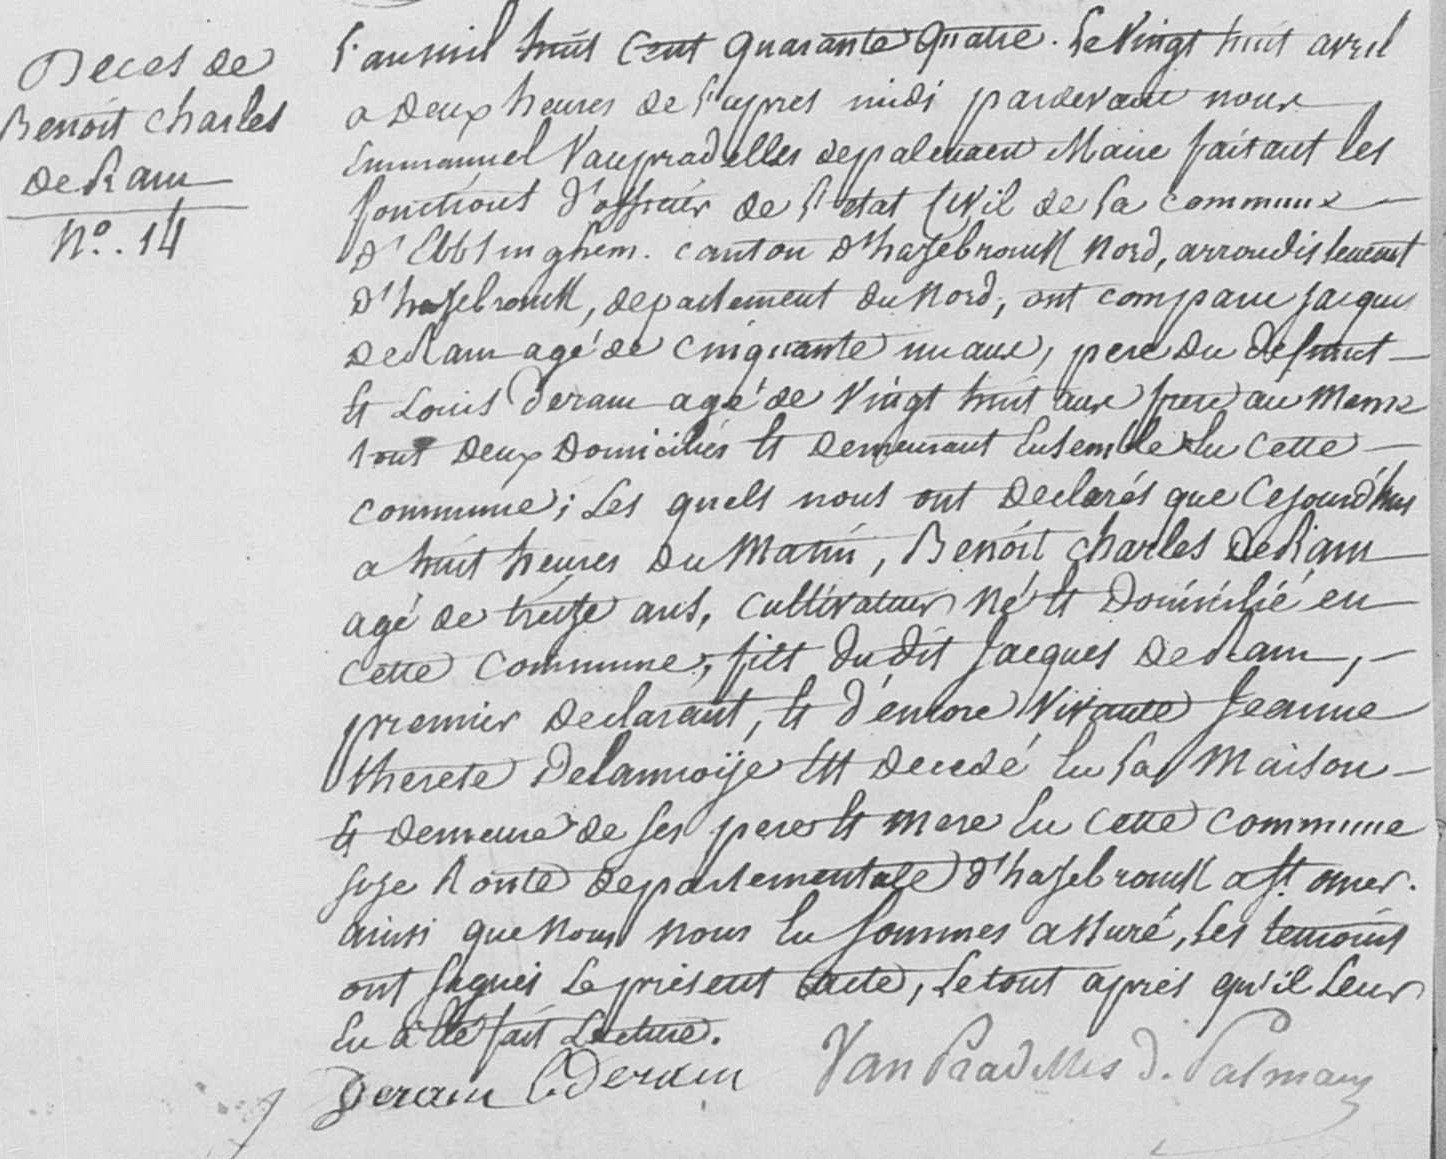 Deces de
Benoit charles
De Ram
N°. 14
L'an mil huit cent quarante quatre. le vingt huit avril
a deux heures de l'apres midi pardevant nous
Emmanuel Vanpradelles depalmaert Maire faisant les
fonctions d'officier de l'etat Civil de la commune
d'Ebblinghem. canton d'hazebrouck Nord, arrondissement
d'hazebrouck, departement du Nord, ont comparu jacques
DeRam agé de cinquante un ans, pere du defunt
et Louis Deram agé de vingt huit ans frere au meme
tout deux domiciliés et demeurant Ensemble En cette
commune; Les quels nous ont declarés que Cejourd'hui
a huit heures du Matin, Benoit charles DeRam
agé de treize ans, Cultivateur Né et Domicilié en
cette Commune, fils dudit Jacques DeRam,
premier declarant, et d'encore vivante Jeanne
therese Delannoije Est decedé En la Maison
et demeure de ses pere et mere En cette commune
size Route departementale d'hazebrouck a St. omer.
ainsi que Nous nous En sommes assuré, Les temoins
ont signés Le present acte, Le tout aprés qu'il Leur
En a été fait Lecture.
Deram L Deram Van Pradelles D. Palmaer